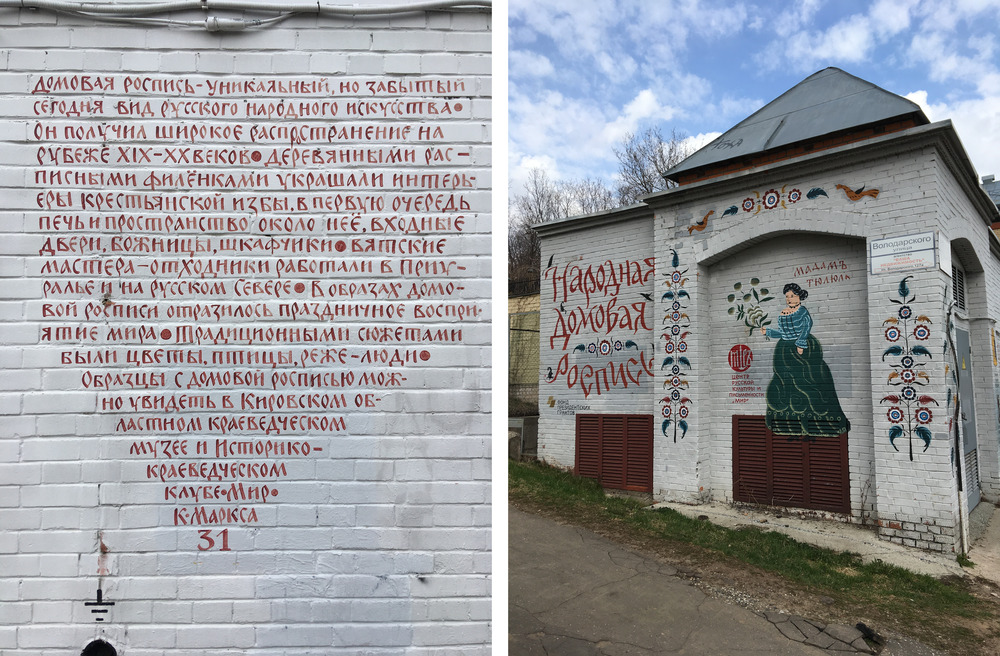 Домовая роспись-уникальный, но забытый
сегодня вид русского народного искусства•
Он получил широкое распространение на
рубеже XIX-XX веков• Деревянными рас-
писными филёнками украшали интерь-
еры крестьянской избы, в первую очередь
печь и пространство около неё, входные
двери, божницы, шкафчики• Вятские
мастера-отходники работали в Приу-
ралье и на русском Севере• В образах домо-
вой росписи отразилось праздничное воспри-
ятие мира• Традиционными сюжетами
были цветы, птицы, реже-люди•
Образцы с домовой росписью мож-
но увидеть в Кировском об-
ластном краеведческом
музее и Историко-
краеведческом
клубе•Мир•
К•Маркса
31
Народная
Домовая
Роспись
ФОНД
ПРЕЗИДЕНТСКИХ
ГРАНТОВ
Мадамъ
Тюлюк
ЦЕНТР
РУССКОЙ
КУЛЬТУРЫ И
ПИСЬМЕННОСТИ
"МИР"
Володарского